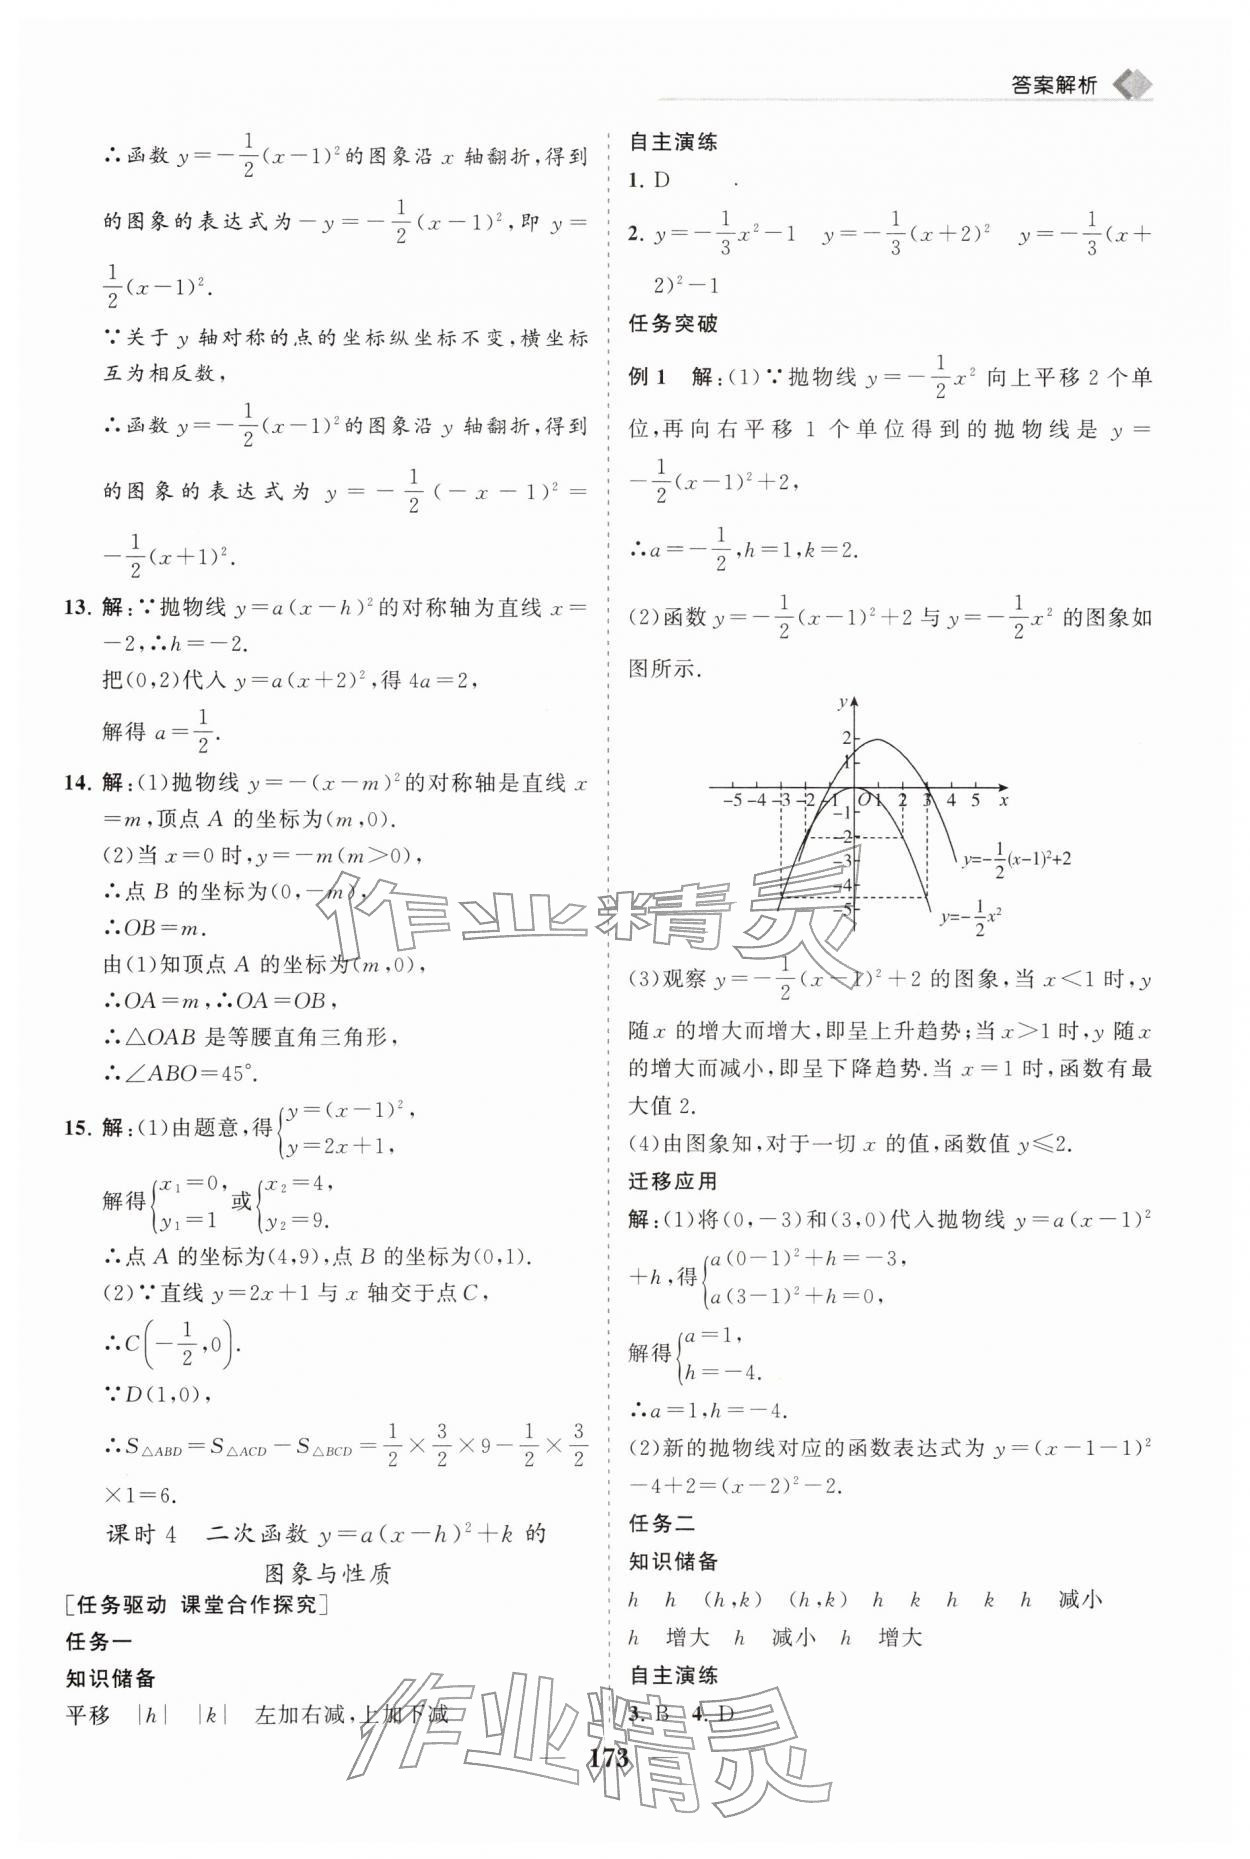 答案解析
∴函数 y=-\frac{1}{2}(x-1)²的图象沿 x 轴翻折,得到
的图象的表达式为-y=-\frac{1}{2}(x-1)²,即 y=
\frac{1}{2}(x-1)².
∵关于 y 轴对称的点的坐标纵坐标不变,横坐标
互为相反数,
∴函数 y=-\frac{1}{2}(x-1)²的图象沿 y 轴翻折,得到
的图象的表达式为 y=-\frac{1}{2}(-x-1)²=
-\frac{1}{2}(x+1)².
13. 解:∵抛物线 y=a(x-h)²的对称轴为直线 x=
-2,∴h=-2.
把(0,2)代入 y=a(x+2)²,得 4a=2,
解得 a=\frac{1}{2}.
14. 解:(1)抛物线 y=-(x-m)²的对称轴是直线 x
=m,顶点 A 的坐标为(m,0).
(2)当 x=0 时,y=-m(m>0),
∴点 B 的坐标为(0,-m),
∴OB=m.
由(1)知顶点 A 的坐标为(m,0),
∴OA=m,∴OA=OB,
∴△OAB 是等腰直角三角形,
∴∠ABO=45°.
15. 解:(1)由题意,得{y=(x-1)²,
y=2x+1,
解得{x₁=0, y₁=1 或{x₂=4, y₂=9.
∴点 A 的坐标为(4,9),点 B 的坐标为(0,1).
(2)∵直线 y=2x+1 与 x 轴交于点 C,
∴C(-\frac{1}{2},0).
∵D(1,0),
∴S△ABD=S△ACD-S△BCD=\frac{1}{2}×\frac{3}{2}×9-\frac{1}{2}×\frac{3}{2}
×1=6.
课时 4 二次函数 y=a(x-h)²+k 的
图象与性质
[任务驱动 课堂合作探究]
任务一
知识储备
平移 |h| |k| 左加右减,上加下减
自主演练
1. D
2. y=-\frac{1}{3}x²-1 y=-\frac{1}{3}(x+2)² y=-\frac{1}{3}(x+
2)²-1
任务突破
例 1 解:(1)∵抛物线 y=-\frac{1}{2}x² 向上平移 2 个单
位,再向右平移 1 个单位得到的抛物线是 y=
-\frac{1}{2}(x-1)²+2,
∴a=-\frac{1}{2},h=1,k=2.
(2)函数 y=-\frac{1}{2}(x-1)²+2 与 y=-\frac{1}{2}x² 的图象如
图所示.
y
2
1
-5 -4 -3 -2 -1 O 1 2 3 4 5 x
-1
-2
-3
-4
-5
y=-\frac{1}{2}(x-1)²+2
y=-\frac{1}{2}x²
(3)观察 y=-\frac{1}{2}(x-1)²+2 的图象,当 x<1 时,y
随x 的增大而增大,即呈上升趋势;当 x>1 时,y 随x
的增大而减小,即呈下降趋势.当 x=1 时,函数有最
大值 2.
(4)由图象知,对于一切 x 的值,函数值 y≤2.
迁移应用
解:(1)将(0,-3)和(3,0)代入抛物线 y=a(x-1)²
+h,得{a(0-1)²+h=-3,
a(3-1)²+h=0,
解得{a=1,
h=-4.
∴a=1,h=-4.
(2)新的抛物线对应的函数表达式为 y=(x-1-1)²
-4+2=(x-2)²-2.
任务二
知识储备
h h (h,k) (h,k) h k h k h 减小
h 增大 h 减小 h 增大
自主演练
3. B 4. D
173
作业精灵
作业精灵